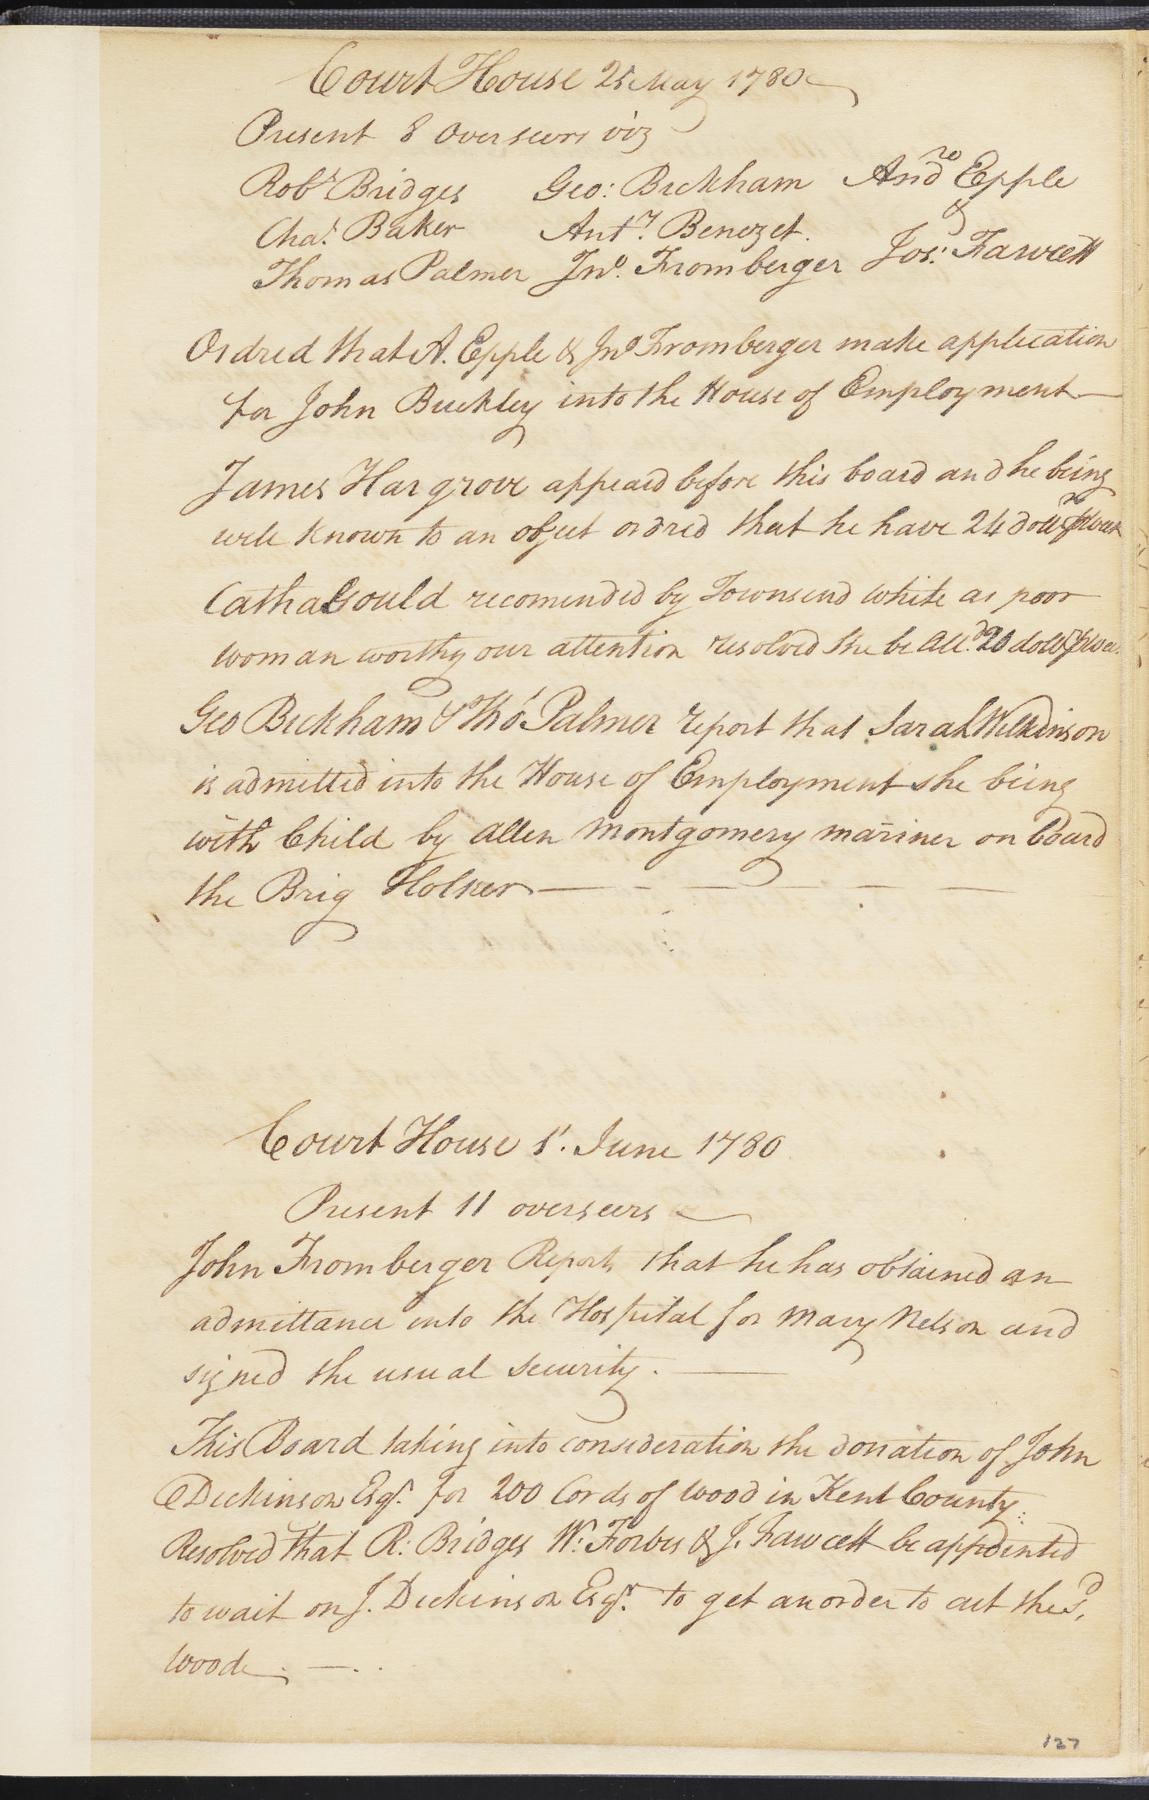 Court House 25 May 1780
Present 8 Overseers viz
Robt Bridges Geo: Bickham Andw Epple
Chas. Baker Anty. Benezet. &
Thomas Palmer Jno. Fromberger Jos: Fawcett
Ordred that A. Epple & Jno Fromberger make application
for John Buckley into the House of Employment —
James Hargrove appeard before this board and he being
well known to an object ordred that he have 24 dollrs pr week
Catha Gould recomended by Townsend White as poor
woman worthy our attention resolved she be alld. 20 dollrs
Geo Bickham & Thos Palmer report that Sarah Wilkinson
is admitted into the House of Employment she being
with Child by Allen Montgomery mariner on board
the Brig Holker — - — - — —
Court House 1. June 1780
Present 11 overseers —
John Fromberger Reports that he has obtained an
admittance into the Hospital for Mary Nelson and
signed the usual security. —
This Board taking into consideration the donation of John
Dickinson Esqr. for 200 Cords of wood in Kent County
Resolved that R: Bridges W: Forbes & J. Fawcett be appointed
to wait on J. Dickinson Esqr. to get an order to cut the sd.
wood. — .
127